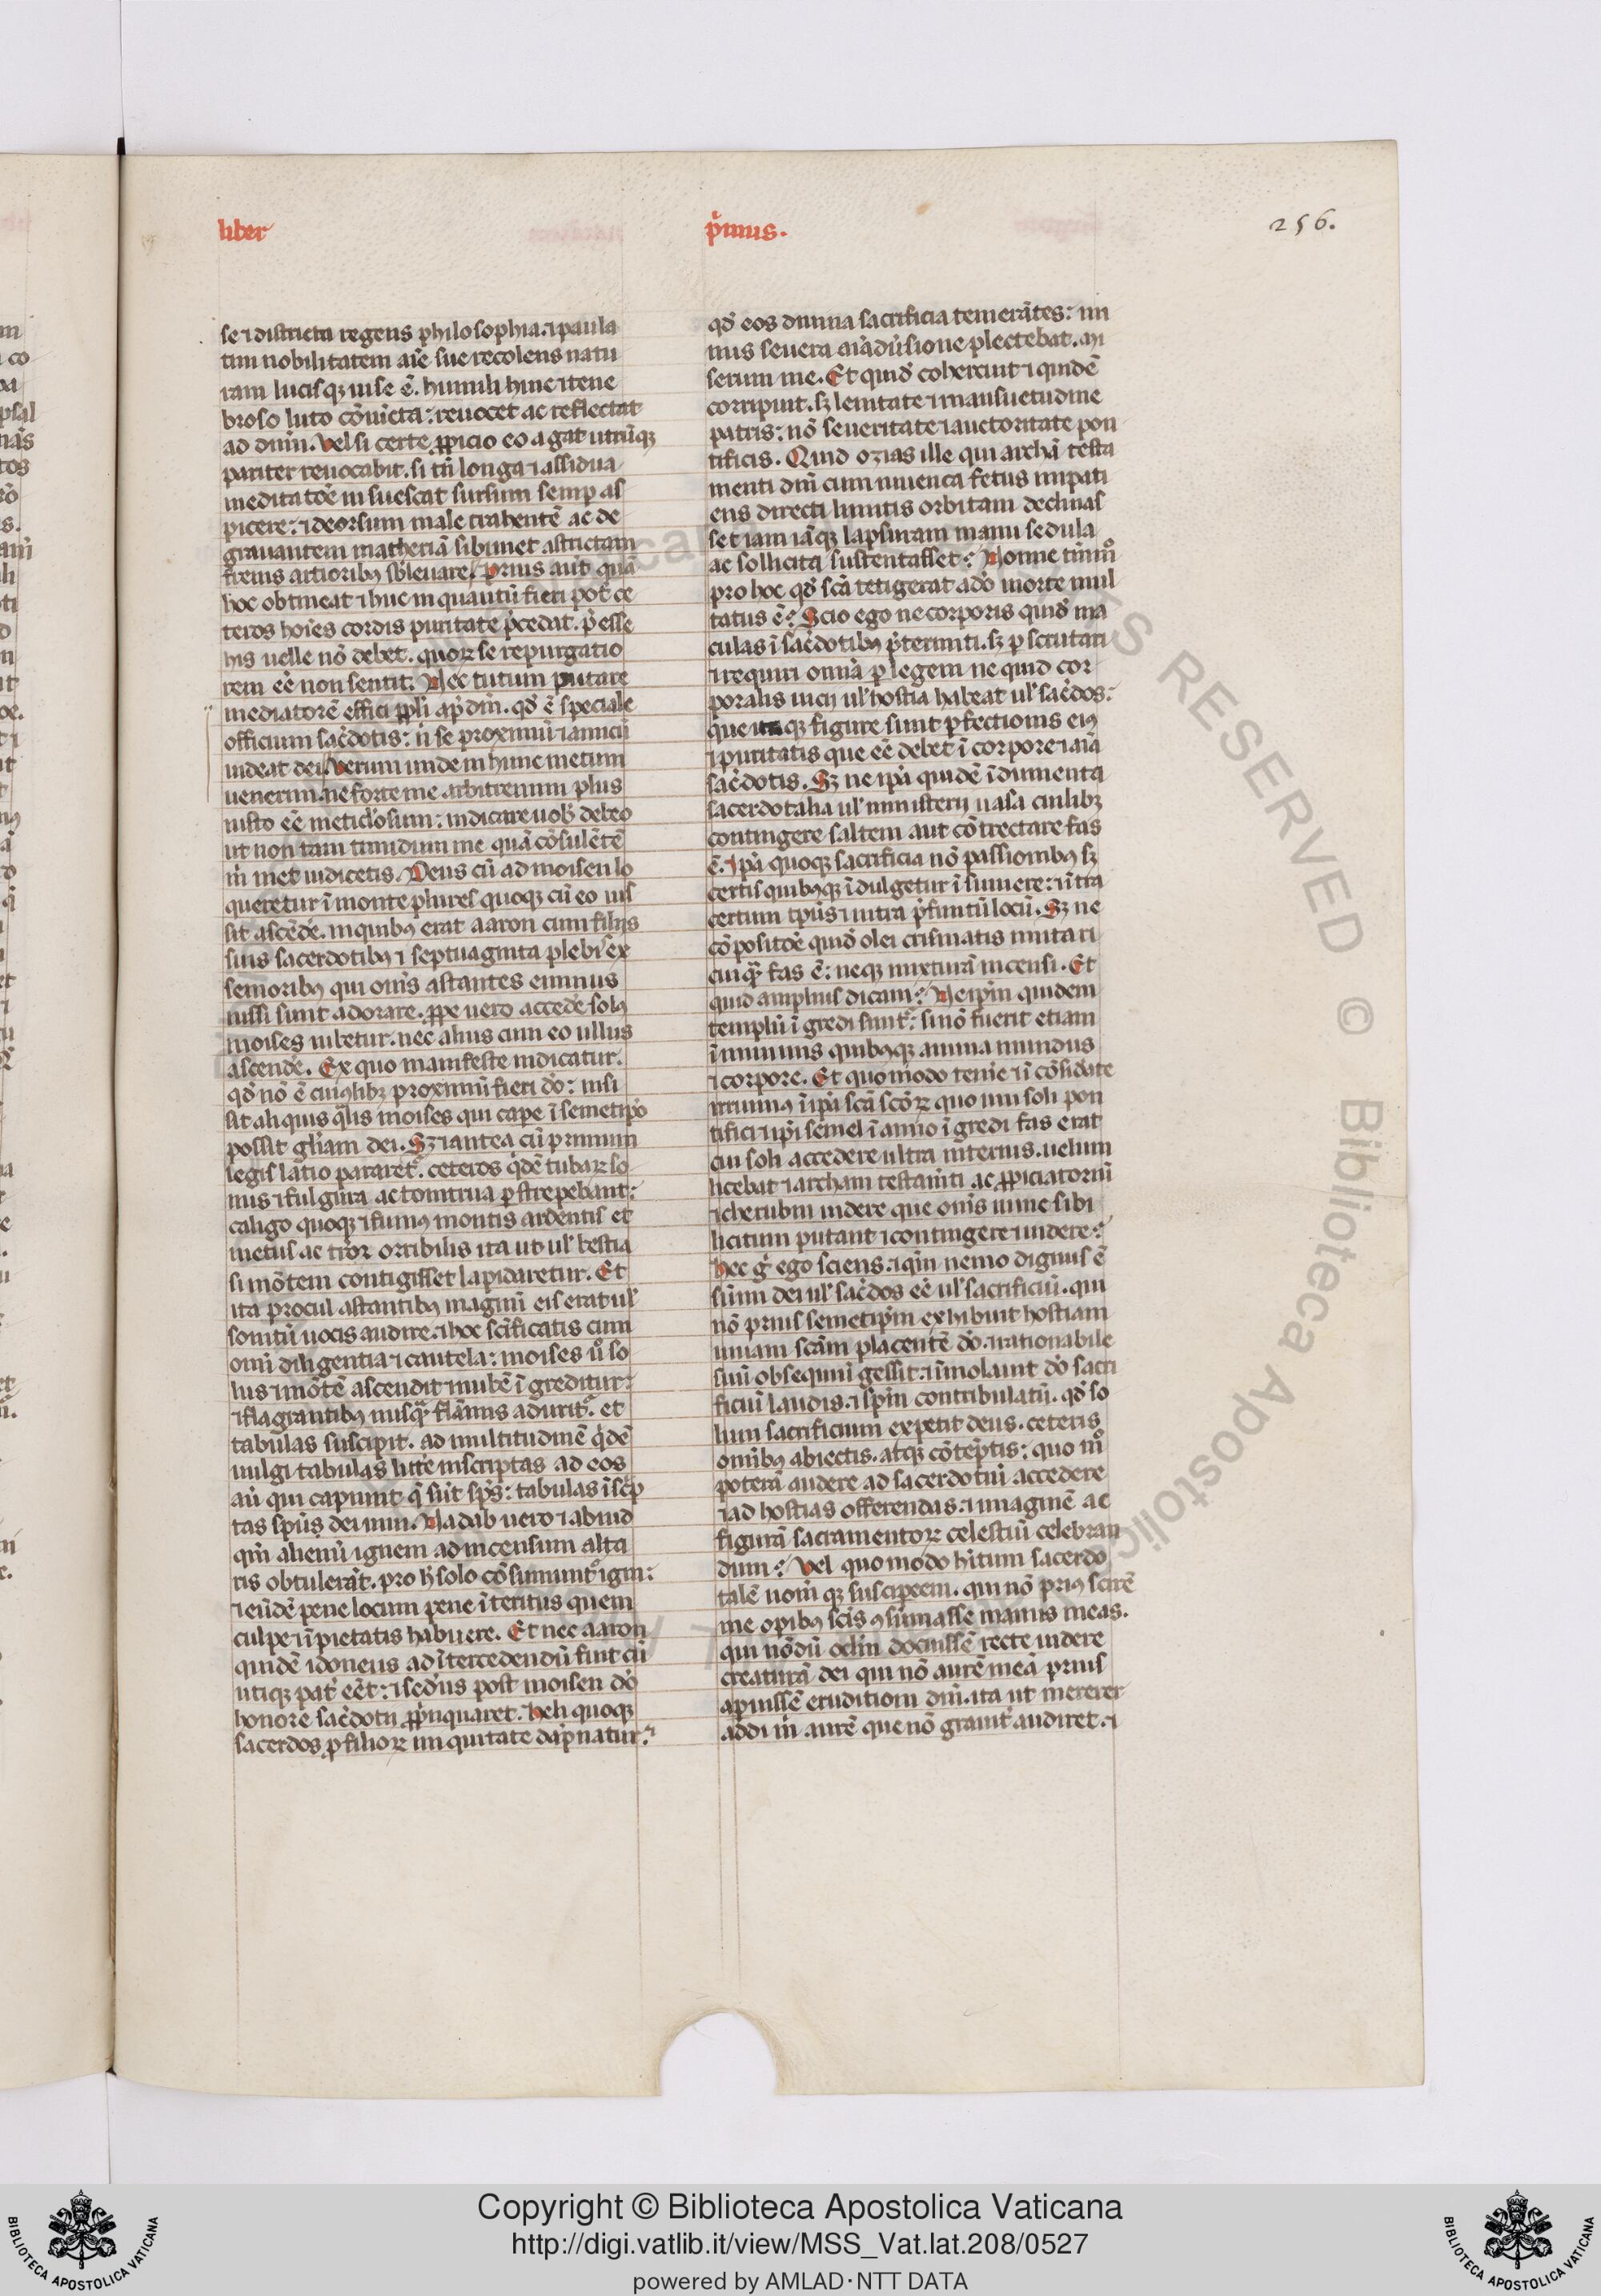 liber
p̾imus.
256.
se ⁊ districta regens philosophia. ⁊ paula
tim nobilitatem aīe sue recolens natu
ram lucis q; iuse ē. humili huic ⁊ tene
broso luto cōuicta: reuocet ac reflectat
ad diuī. Vel si certe ꝓpicio eo agat utrūq;
pariter reuocabit. si tn̄ longa ⁊ assidua
meditatōe insuescat sursum semꝑ as
picere: ⁊ deorsum male trahentē ac de
grauantem matheriā sibimet astrictam
frenis artioribꝰ sb̓leuare. Prius aūt quā
hoc obtineat ⁊ huc in quantū fieri pot̄ ce
teros hoīes cordis puritate p̄cedat. p̄esse
his uelle nō debet. quoꝝ se repurgatio
rem eē non sentit. Nec tutum putare
mediatorē effici ppl̓i ap̓ dm̄. qđ ē speciale
officium sac̓dotis: n̄ se proximū ⁊ amicū
uideat dei. Verum unde in hunc metum
uenerim. ne forte me arbitremini plus
iusto eē meticl̓osum: indicare uob̓ debeo
ut non tam timidum me quā cōsulētē
m̓ met iudicetis. Deus cū ad moisen lo
queretur ī monte plures quoq; cū eo ius
sit ascēde̓. in quibꝰ erat aaron cum filiis
suis sacerdotibꝰ ⁊ septuaginta plebis ex
senioribꝰ qui om̄s astantes eminus
iussi sunt adorare. ꝓpe uero accede̓ solꝰ
moises iubetur. nec alius cum eo ullus
ascende̓. Ex quo manifeste indicatur.
qđ nō ē cuiuslib; proximū fieri dō: nisi
sit aliquis q̓lis moises qui cape̓ ī semetip̄o
possit gl̓iam dei. S; ⁊ antea cū primum
legis latio pararet᷑. ceteros q̓dē tubaꝝ so
nus ⁊ fulgura ac tonitrua ꝑstrepebant:
caligo quoq; ⁊ fumꝰ montis ardentis et
metus ac t̓ror orribilis ita ut ul̓ bestia
si mōtem contigisset lapidaretur. Et
ita procul astantibꝰ magnū eis erat ul̓
sonitū uocis audire. ⁊ hoc sc̄ificatis cum
omī diligentia ⁊ cautela: moises u̓o so
lus ⁊ mōtē ascendit ⁊ nubē ī greditur:
⁊ flagrantibꝰ nusq̄ flāmis adurit᷑. et
tabulas suscipit. ad multitudinē q̓dē
uulgi tabulas litt̓e inscriptas ad eos
aū qui capiunt q̄ sūt sp̄s: tabulas ī sc̓p
tas sp̄us dei uiui. Nadab uero ⁊ abiud
qm̄ alienū ignem ad incensum alta
ris obtulerāt. pro h̓ solo cōsumunt᷑ igni:
⁊ eūdē pene locum pene ī teritus quem
culpe ⁊ ī pietatis habuere. Et nec aaron
quidē idoneus ad ītercedendū fuit cū
utiq; pat̓ eēt: ⁊ sed̓us post moisen dō
honore sac̓dotii ꝓpinquaret. Heli quoq;
sacerdos ꝑ filioꝝ iniquitate dāpnatur:
qđ eos diuina sacrificia temerātes: mi
nus seuera aīaduīsione plectebat. mi
serum me. Et quid̓ coherciuit ⁊ quidē
corripuit. s; lenitate ⁊ mansuetudine
patris: nō seueritate ⁊ auctoritate pon
tificis. Quid ozias ille qui archā testa
menti dn̄i cum iuuenca fetus impati
ens directi limitis orbitam declinas
set iam iāq; lapsuram manu sedula
ac sollicita sustentasset: Nonne
pro hoc qđ scā tetigerat a dō morte mul
tatus ē? Scio ego ne corporis quid̓ ma
culas ī sac̓dotibꝰ p̄termitti. s; ꝑscrutari
⁊ requiri om̄ia ꝑ legem ne quid cor
poralis uicij ul̓ hostia habeat ul̓ sac̓dos:
que utiq; figure sunt ꝑfectionis eiꝰ
⁊ puritatis que eē debet ī corpore ⁊ aīa
sac̓dotis. S; ne ip̄a quidē īdumenta
sacerdotalia ul̓ ministerij uasa cuilib;
contingere saltem aut cōtrectare fas
ē. Ip̄a quoq; sacrificia nō passionibꝰ s;
certis quibꝰq; īdulgetur ī sumere: ⁊ ītra
certum tp̄us ⁊ intra p̄finitū locū. S; ne
cōpositōē quid̓ olei crismatis imitari
cuiq̄ fas ē: neq; mixturā incensi. Et
quid amplius dicam? Ne ip̄m quidem
templū ī gredi sinit᷑: si nō fuerit etiam
ī minimis quibꝰq; anima mundus
⁊ corpore. Et quomodo tem̓e ⁊ ī cōsid̓ate
irruimꝰ ī ip̄a scā scōꝝ quo uni soli pon
tifici ⁊ ip̄i semel ī anno ī gredi fas erat
cui soli accedere ultra internis. uelum
licebat ⁊ archam testam̄ti ac ꝓpiciatoriū
⁊ cherubin uidere que om̄s nunc sibi
licitum putant ⁊ contingere ⁊ uidere:
Hec g̓ ego sciens. ⁊ qm̄ nemo dignus ē
sūmi dei ul̓ sac̓dos eē ul̓ sacrificiū. qui
nō prius semetip̄m exhibuit hostiam
uiuam scām placentē dō. ⁊ rationabile
suū obsequiū gessit. ⁊ īmolauit dō sacri
ficiū laudis. ⁊ sp̄m contribulatū. qđ so
lum sacrificium expetit deus. ceteris
om̄ibꝰ abiectis. atq; cōtēptis: quo m̊
poterā audere ad sacerdotiū accedere
⁊ ad hostias offerendas. ⁊ imaginē ac
figurā sacramentoꝝ celestiū celebran
dum: Vel quomodo h̓itum sacerdo
talē nom̄ q; suscipeem. qui nō priꝰ scirē
me opibꝰ scīs ꝯsūmasse manus meas.
qui nōdū oclīn docuissē recte uidere
creaturā dei qui nō aurē meā prius
apuissē eruditioni dn̄i. ita ut mererer
addi m̓ aurē que nō grauit̓ audiret. ⁊
Copyright © Biblioteca Apostolica Vaticana
http://digi.vatlib.it/view/MSS_Vat.lat.208/0527
powered by AMLAD·NTT DATA